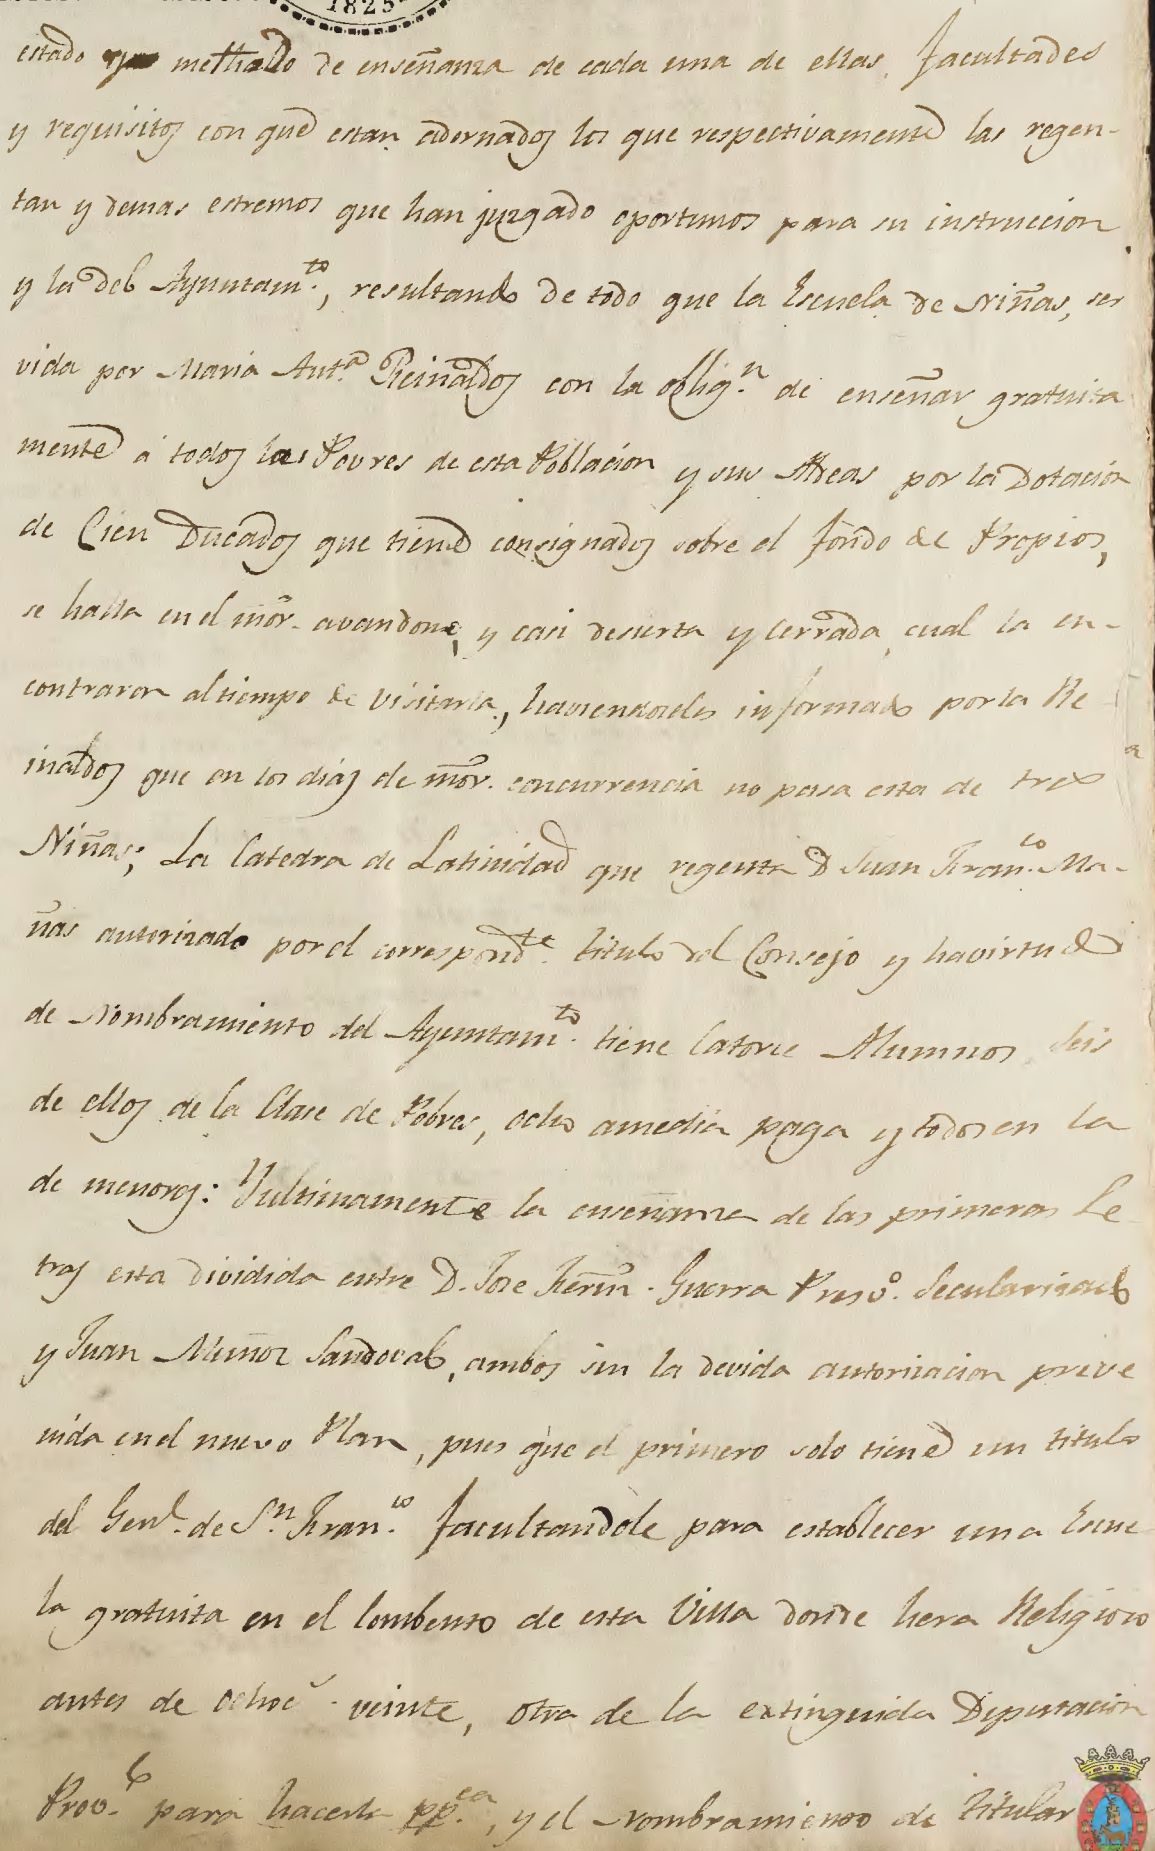 1825
estado y methodo de enseñanza de cada una de ellas, facultades
y requisitos con que estan adornados los que respectivamente las regen-
tan y demas estremos que han juzgado oportunos para su instruccion
y la del Ayuntam.to, resultando de todo que la Escuela de Niñas, ser
vida por Maria Ant.a Reinaldos con la oblig.n de enseñar gratuita
mente á todos las Povres de esta Poblacion y sus Aldeas por la Dotacion
de Cien Ducados que tiene consignados sobre el fondo de Propios,
se halla en el mör. avandono, y casi desierta y cerrada, cual la en-
contraron al tiempo de visitarla, haviendoseles informado por la Re
inaldos que en los dias de mör. concurrencia no pasa esta de tres
Niñas; La Catedra de Latinidad que regenta D Juan Fran.co Ma-
ñas autorizado por el correspond.te titulo del Consejo y ha virtud
de Nombramiento del Ayuntam.to tiene Catorce Alumnos, seis
de ellos de la Clase de Pobres, ocho a media paga y todos en la
de menores: Y ultimamente la enseñanza de las primeras Le
tras esta dividida entre D. Jose Fern. Guerra Presv.o Secularizado
y Juan Muñoz Sandoval, ambos sin la devida autorizacion preve
nida en el nuevo Plan, pues que el primero solo tiene un titulo
del Genl. de S.n Fran.co facultandole para establecer una Escue
la gratuita en el Combento de esta Villa donde hera Religioso
antes de ochoc.s veinte, otra de la extinguida Diputacion
Prov.l para hacerla pp.ca, y el Nombramiento de titular